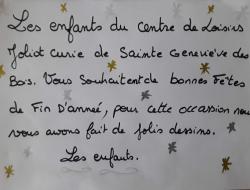 Les enfants du Centre de Loisirs
Joliot Curie de Sainte Geneviève des
Bois. Vous Souhaitent de bonnes Fêtes
de Fin D'année, pour cette occasion nous
vous avons fait de jolis dessins.
Les enfants.